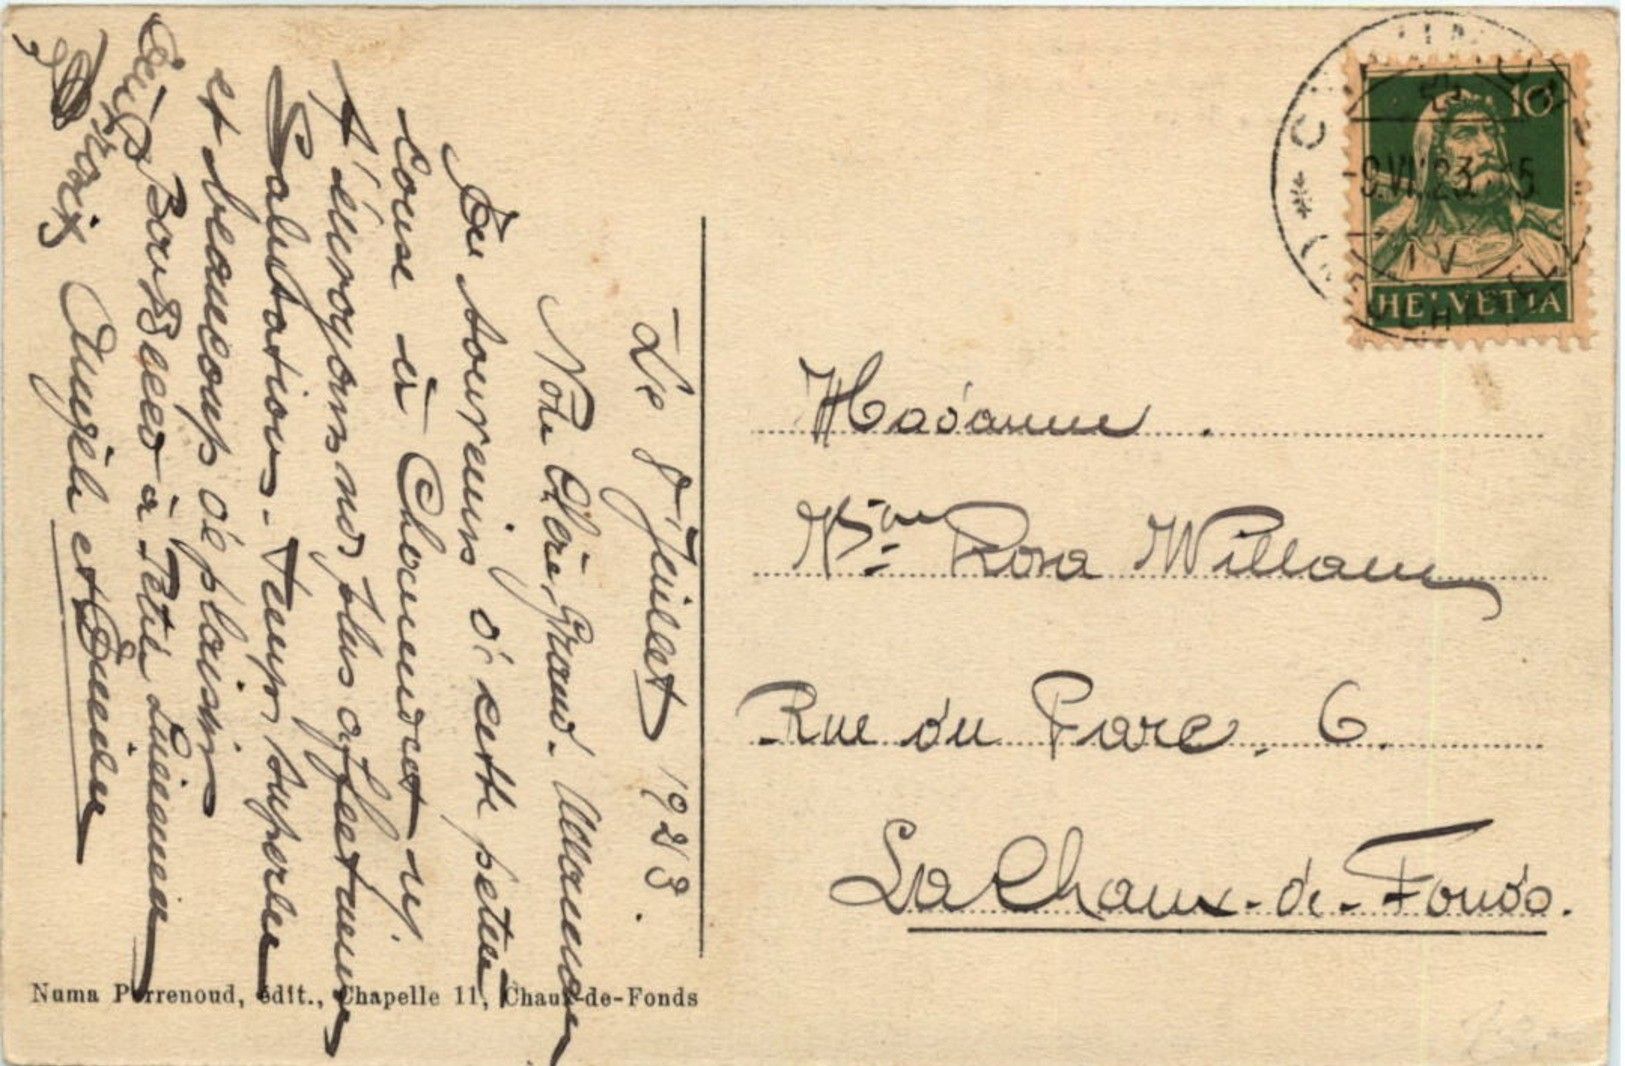 Le 8 Juillet 1923.
Notre Chère Grand-Maman
En souvenir d'cette petite
course à Chaumont ny.
t'envoyons nos plus affectueuses
Salutation. Temps superbe
et beaucoup de plaisir
Baisers à Petite
Angèle et
Madame
Mme Rosa Willam
Rue du Parc. 6.
La Chaux-de-Fonds.
10
HELVETIA
-9.VII.23.-15
Numa Perrenoud, édit., Chapelle 11, Chaux-de-Fonds